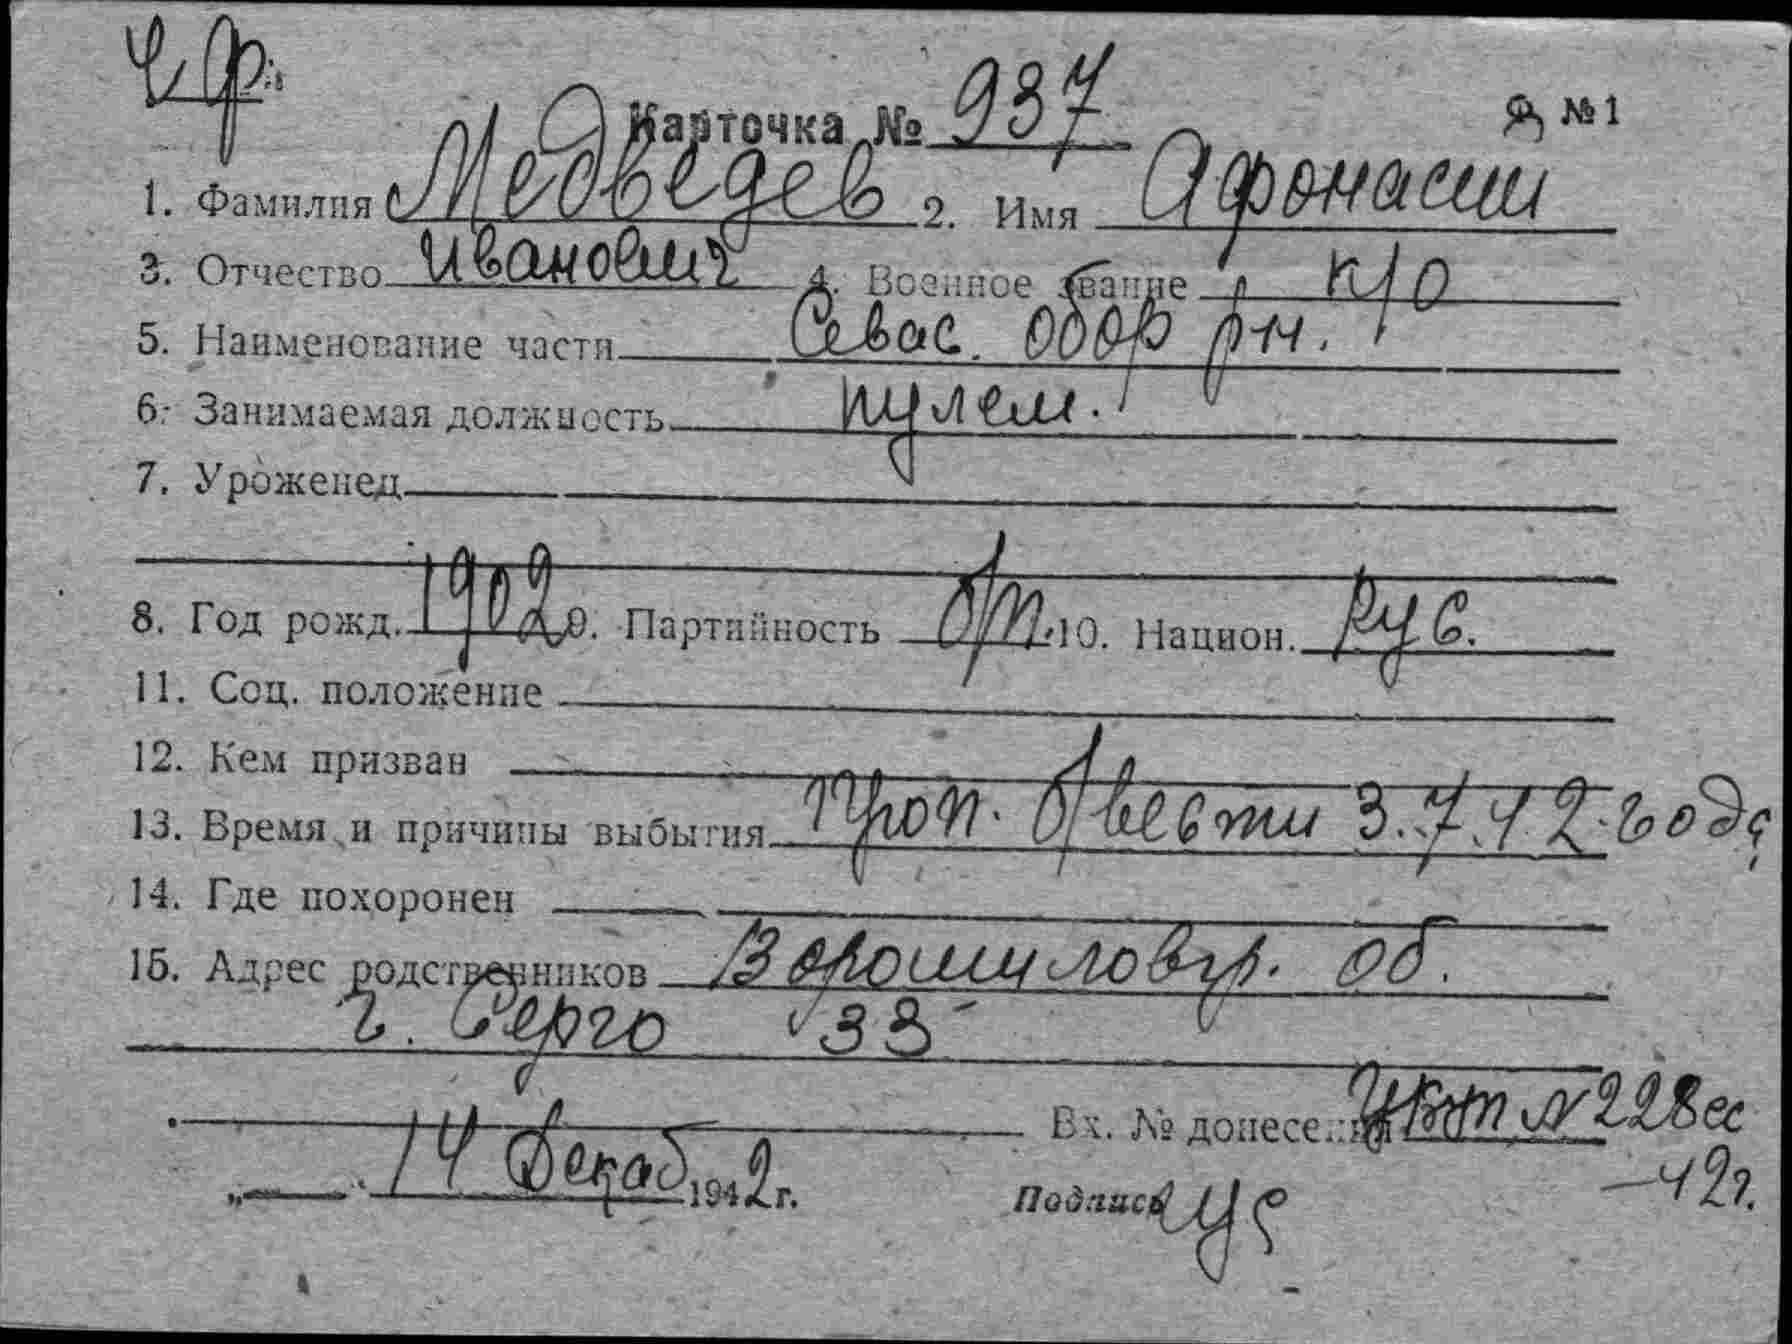 Ч.Ф.
Карточка № 937 Ф №1
1. Фамилия Медведев 2. Имя Афонасии
3. Отчество Иванович 4. Военное звание к/о
5. Наименование части Севас. обор рн.
6. Занимаемая должность пулем.
7. Уроженец
8. Год рожд. 1902 9. Партийность б/п. 10. Национ. Рус.
11. Соц. положение
12. Кем призван
13. Время и причины выбытия Проп. б/вести 3.7.42 года
14. Где похоронен
15. Адрес родственников Ворошиловгр. об.
г. Серго 33
Вх. № донесения № 228сс
14 Декаб 1942 г. Подпись
-42г.